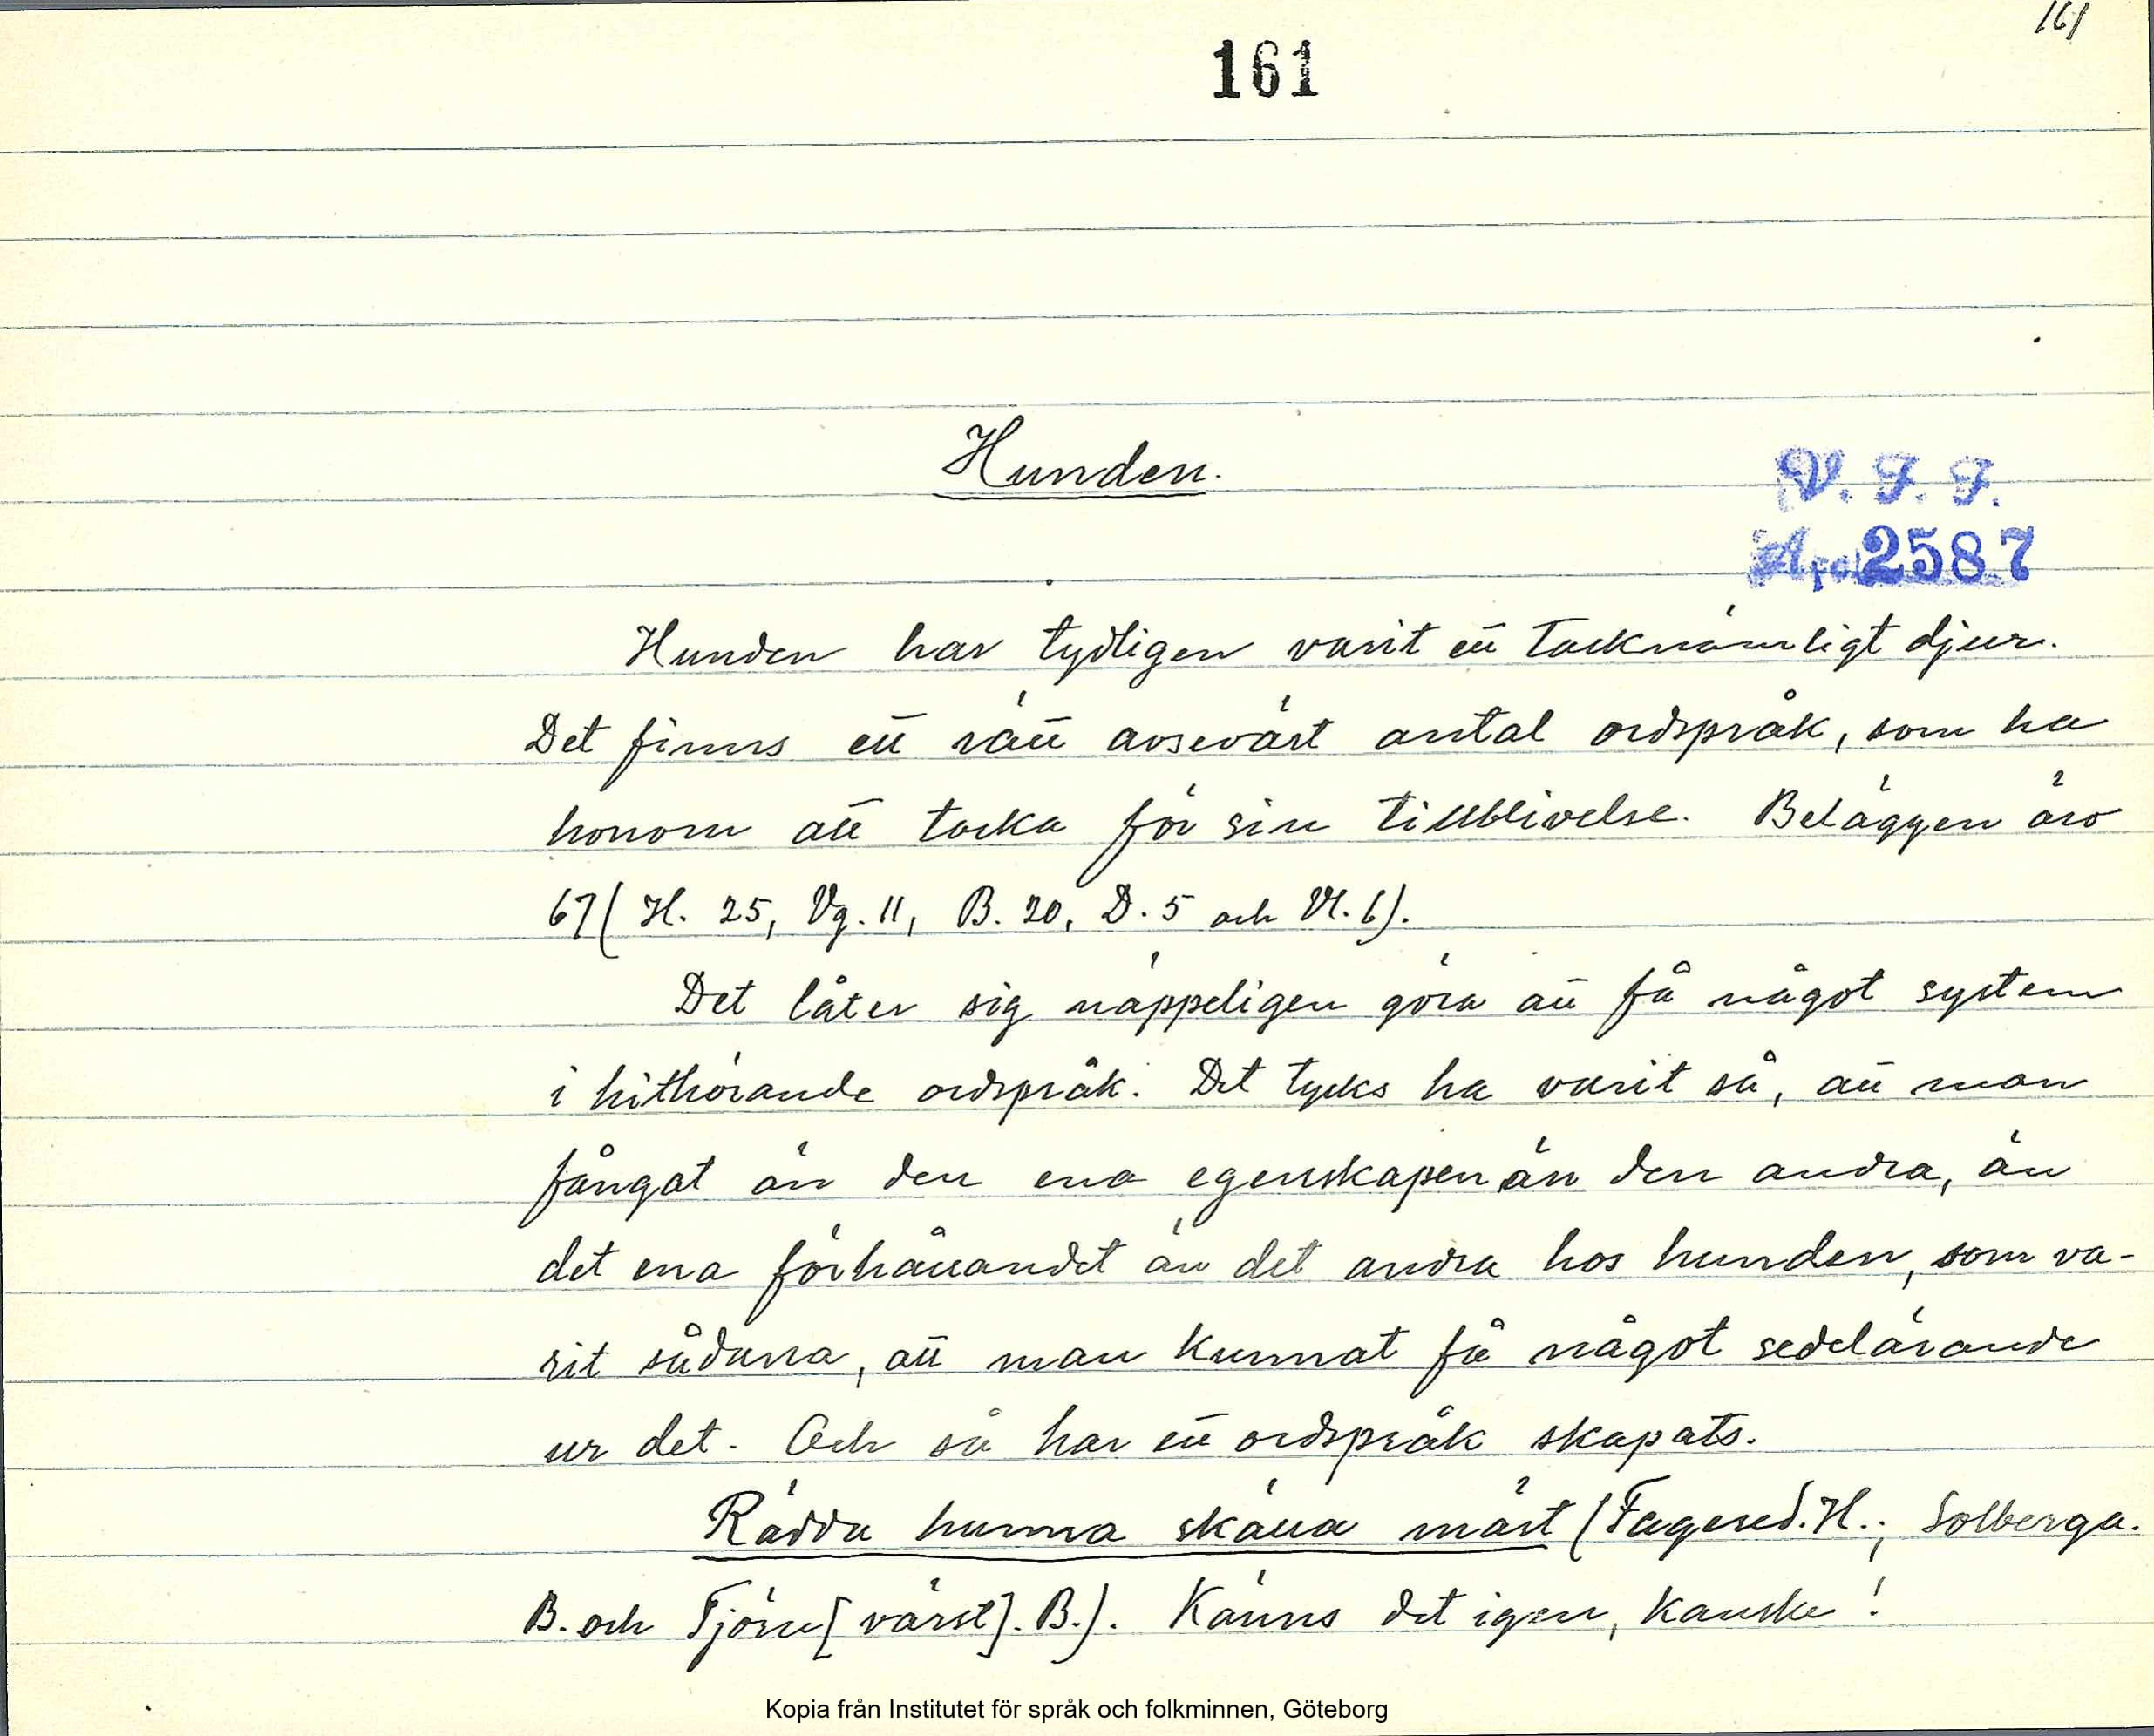 161
161
Hunden.
V. F. F.
Acc 2587
Hunden har tydligen varit ett tacknämligt djur.
Det finns ett rätt avsevärt antal ordspråk, som ha
honom att tacka för sin tillblivelse. Beläggen äro
67 (H. 25, Vg. 11, B. 20, D. 5 och Vl. 6).
Det låter sig näppeligen göra att få något system
i hithörande ordspråk. Det tycks ha varit så, att man
fångat än den ena egenskapen än den andra, än
det ena förhållandet än det andra hos hunden, som va-
rit sådana, att man kunnat få något sedelärande
ur det. Och så har ett ordspråk skapats.
Rädda hunna skälla mäst (Fagered. H.; Solberga.
B. och Tjörn [värst]. B.). Känns det igen, kanske!
Kopia från Institutet för språk och folkminnen, Göteborg